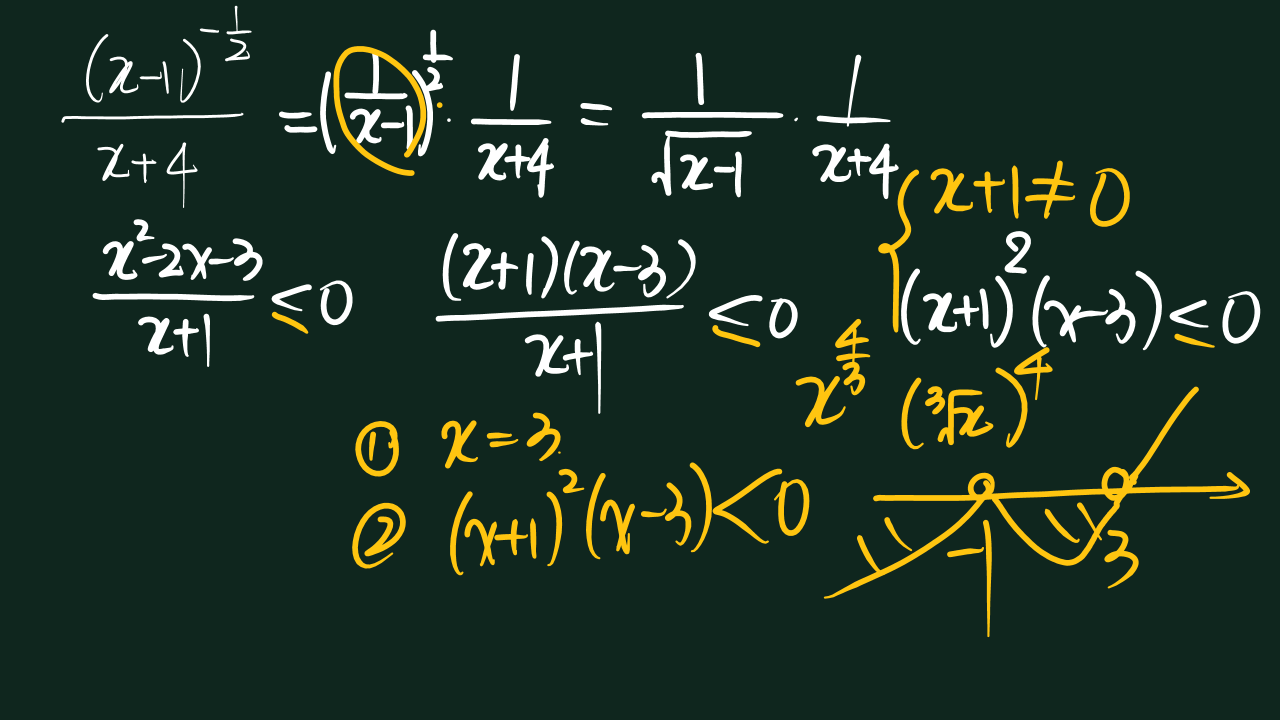 (x-1)^{-\frac{1}{2}} / (x+4) = (\frac{1}{x-1})^{\frac{1}{2}} · \frac{1}{x+4} = \frac{1}{\sqrt{x-1}} · \frac{1}{x+4}
\frac{x^2-2x-3}{x+1} ≤ 0
\frac{(x+1)(x-3)}{x+1} ≤ 0
{ x+1 ≠ 0
(x+1)^2 (x-3) ≤ 0
x^{\frac{4}{3}} (\sqrt[3]{x})^4
① x = 3
② (x+1)^2 (x-3) < 0
-1 3